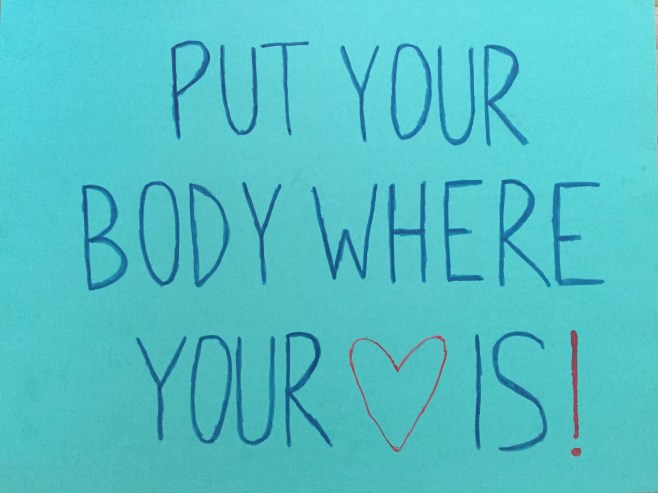 PUT YOUR
BODY WHERE
YOUR ♡ IS!